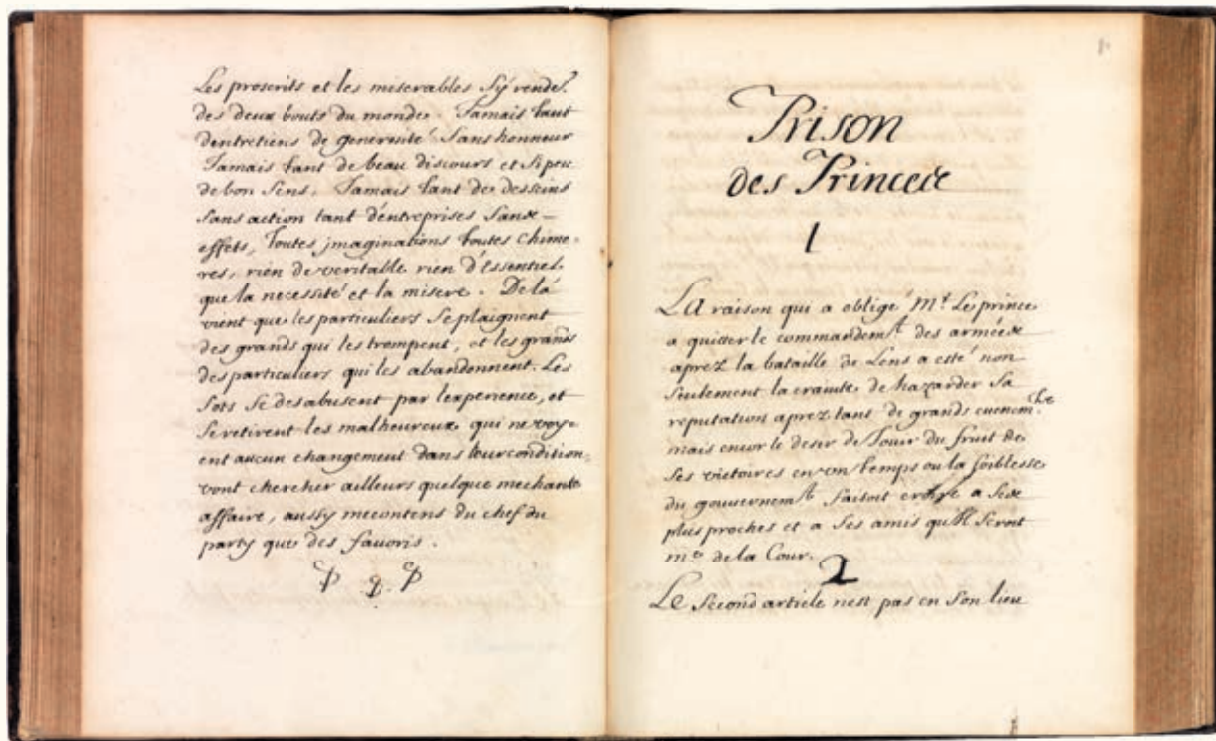 Les proscrits et les miserables s'y rendet
des deux bouts du monde. Jamais tant
dentretiens de generosité sans honneur
Jamais tant de beau discours et si peu
de bon sens. Jamais tant de desseins
sans action tant dentreprises sans
effets, toutes jmaginations toutes chime-
res, rien de veritable rien d'essentiel
que la necessité et la misere. De là
vient que les particuliers se plaignent
des grands qui les trompent, et les grands
des particuliers qui les abandonnent. Les
sots se desabusent par lexperience, et
se retirent les malheureux qui ne voy-
ent aucun changement dans leur condition
vont chercher ailleurs quelque mechante
affaire, aussy mecontens du chef du
party que des favoris.
Prison
des Princes
1
La raison qui a obligé Mr. Le prince
a quitter le commandemt. des armées
aprez la bataille de Lens a esté non
seulement la crainte de hazarder sa
reputation aprez tans de grands evenem
mais encor le desir de jouir du fruit de
ses victoires en vn temps ou la foiblesse
du gouvernemt. faisoit croire a ses
plus proches et a ses amis qu'il seroit
me de la Cour.
2
Le second article nest pas en son lieu